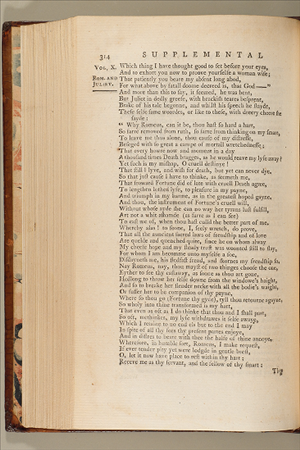 314 SUPPLEMENTAL
VOL. X.
ROM. AND
JULIET.
Which thing I have thought good to set before your eyes,
And to exhort you now to prove yourselfe a woman wise;
That patiently you beare my absent long abod,
For what above by fatall doome decreed is, that God—"
And more than this to say, it seemed, he was bent,
But Juliet in deadly greefe, with brackish teares besprent,
Brake of his tale begonne, and whilst his speech he stayde,
These selfe same woordes, or like to these, with dreery cheere she
sayde:
" Why Romeus, can it be, thou hast so hard a hart,
So farre removed from ruth, so farre from thinking on my smart,
To leave me thus alone, thou cause of my distresse,
Beseged with so great a campe of mortall wretchednesse;
That every houre now and moment in a day
A thousand times Death bragges, as he would reave my lyfe away?
Yet such is my mishap, O cruell destinye!
That still I lyve, and wish for death, but yet can never dye.
So that just cause I have to thinke, as seemeth me,
That froward Fortune did of late with cruell Death agree,
To lengthen lothed lyfe, to pleasure in my payne,
And triumph in my harme, as in the greatest hoped gayne.
And thou, the instrument of Fortune's cruell will,
Without whose ayde she can no way her tyrans lust fulfill,
Art not a whit ashamde (as farre as I can see)
To cast me of, when thou hast culld the better part of me.
Whereby alas! to soone, I, seely wretch, do prove,
That all the auncient sacred laws of friendship and of love
Are quelde and quenched quite, since he on whom alway
My cheefe hope and my steady trust was wonted still to stay,
For whom I am becomme unto myselfe a foe,
Disdayneth me, his stedfast frend, and skornes my friendship so.
Nay Romeus, nay, thou mayst of two thinges choose the one,
Eyther to see thy castaway, as soone as thou art gone,
Hedlong to throw her selfe downe from the window's haight,
And so to breake her slender necke with all the bodie's waight,
Or suffer her to be companion of thy payne,
Where so thou go (Fortune thy gyde), tyll thou retourne agayne.
So wholy into thine transformed is my hart,
That even as oft as I do thinke that thou and I shall part,
So oft, methinkes, my lyfe withdrawes it selfe awaye,
Which I retaine to no end els but to the end I may
In spite of all thy foes thy present partes enjoye,
And in distres to beare with thee the halfe of thine annoye.
Wherefore, in humble sort, Romeus, I make request,
If ever tender pity yet were lodgde in gentle brest,
O, let it now have place to rest within thy hart;
Receve me as thy servant, and the fellow of thy smart:
Thy